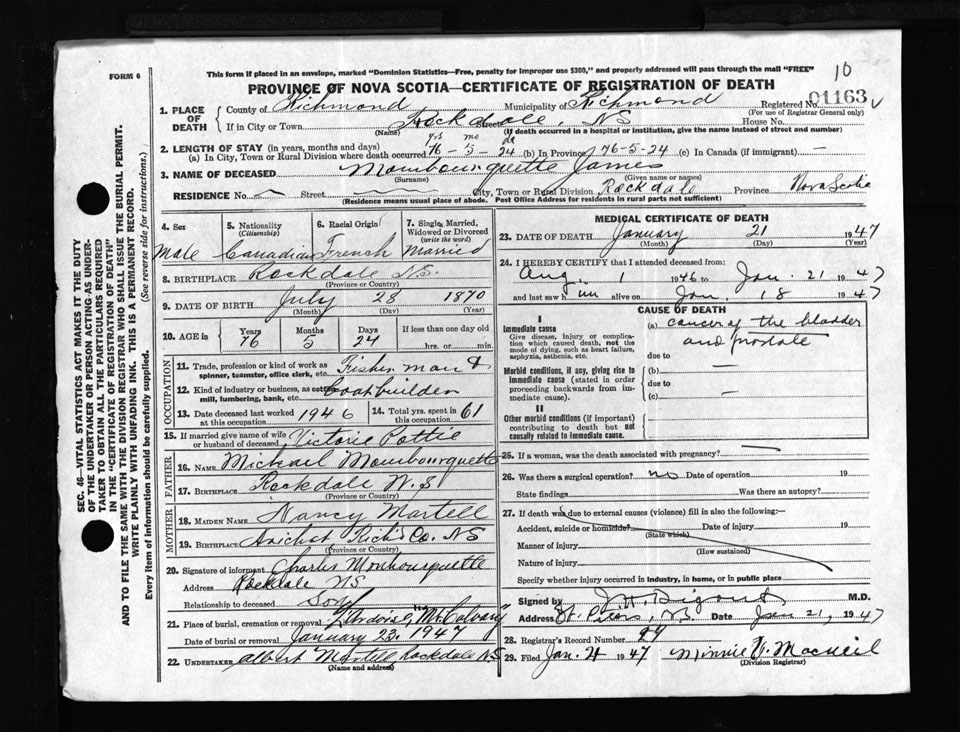 FORM 6
This form if placed in an envelope, marked "Dominion Statistics—Free, penalty for improper use $300," and properly addressed will pass through the mail "FREE"
10
PROVINCE OF NOVA SCOTIA—CERTIFICATE OF REGISTRATION OF DEATH
1. PLACE OF DEATH
County of Richmond Municipality of Richmond Registered No. 01163
(For use of Registrar General only)
If in City or Town Rockdale, NS Street House No.
(Name) (If death occurred in a hospital or institution, give the name instead of street and number)
2. LENGTH OF STAY (in years, months and days) yrs mo da
(a) In City, Town or Rural Division where death occurred 76-5-24 (b) In Province 76-5-24 (c) In Canada (if immigrant) —
3. NAME OF DECEASED Mombourquette James
(Surname) (Given name or names)
RESIDENCE No. Street City, Town or Rural Division Rockdale Province Nova Scotia
(Residence means usual place of abode. Post Office Address for residents in rural parts not sufficient)
4. Sex Male
5. Nationality (Citizenship) Canadian
6. Racial Origin French
7. Single, Married, Widowed or Divorced (write the word) Married
8. BIRTHPLACE Rockdale N.S.
(Province or Country)
9. DATE OF BIRTH July 28 1870
(Month) (Day) (Year)
10. AGE in Years 76 Months 5 Days 24 If less than one day
hrs. or min.
OCCUPATION
11. Trade, profession or kind of work as spinner, teamster, office clerk, etc. Fisherman &
12. Kind of industry or business, as cotton mill, lumbering, bank, etc. Boatbuilder
13. Date deceased last worked at this occupation 1946 14. Total yrs. spent in this occupation 61
15. If married give name of wife or husband of deceased Victorie Pottie
FATHER
16. NAME Michael Mombourquette
17. BIRTHPLACE Rockdale N.S
(Province or Country)
MOTHER
18. MAIDEN NAME Nancy Martell
19. BIRTHPLACE Arichat Rich. Co. NS
(Province or Country)
20. Signature of informant Charles Mombourquette
Address Rockdale NS
Relationship to deceased Son
21. Place of burial, cremation or removal L'Ardoise, Mt. Calvary
Date of burial or removal January 23, 1947
22. UNDERTAKER Albert Martell Rockdale N.S
(Name and address)
MEDICAL CERTIFICATE OF DEATH
23. DATE OF DEATH January 21 1947
(Month) (Day) (Year)
24. I HEREBY CERTIFY that I attended deceased from:
Aug. 1 1946 to Jan. 21 1947
and last saw him alive on Jan. 18 1947
CAUSE OF DEATH
I
Immediate cause
Give disease, injury or complication which caused death, not the mode of dying, such as heart failure, asphyxia, asthenia, etc.
(a) cancer of the bladder
and prostate
due to
Morbid conditions, if any, giving rise to immediate cause (stated in order proceeding backwards from immediate cause).
(b) —
due to
(c) —
II
Other morbid conditions (if important) contributing to death but not causally related to immediate cause.
25. If a woman, was the death associated with pregnancy?
26. Was there a surgical operation? no Date of operation 19
State findings Was there an autopsy?
27. If death was due to external causes (violence) fill in also the following:—
Accident, suicide or homicide? Date of injury 19
(State which)
Manner of injury
(How sustained)
Nature of injury
Specify whether injury occurred in industry, in home, or in public place
Signed by M.D.
Address St. Peters, N.S. Date Jan 21, 1947
28. Registrar's Record Number
29. Filed Jan. 1947 Minnie MacNeil
(Division Registrar)
SEC. 46—VITAL STATISTICS ACT MAKES IT THE DUTY
OF THE UNDERTAKER OR PERSON ACTING AS UNDER-
TAKER TO OBTAIN ALL THE PARTICULARS REQUIRED
IN THE "CERTIFICATE OF REGISTRATION OF DEATH"
AND TO FILE THE SAME WITH THE DIVISION REGISTRAR WHO SHALL ISSUE THE BURIAL PERMIT.
WRITE PLAINLY WITH UNFADING INK. THIS IS A PERMANENT RECORD.
Every item of information should be carefully supplied. (See reverse side for instructions.)